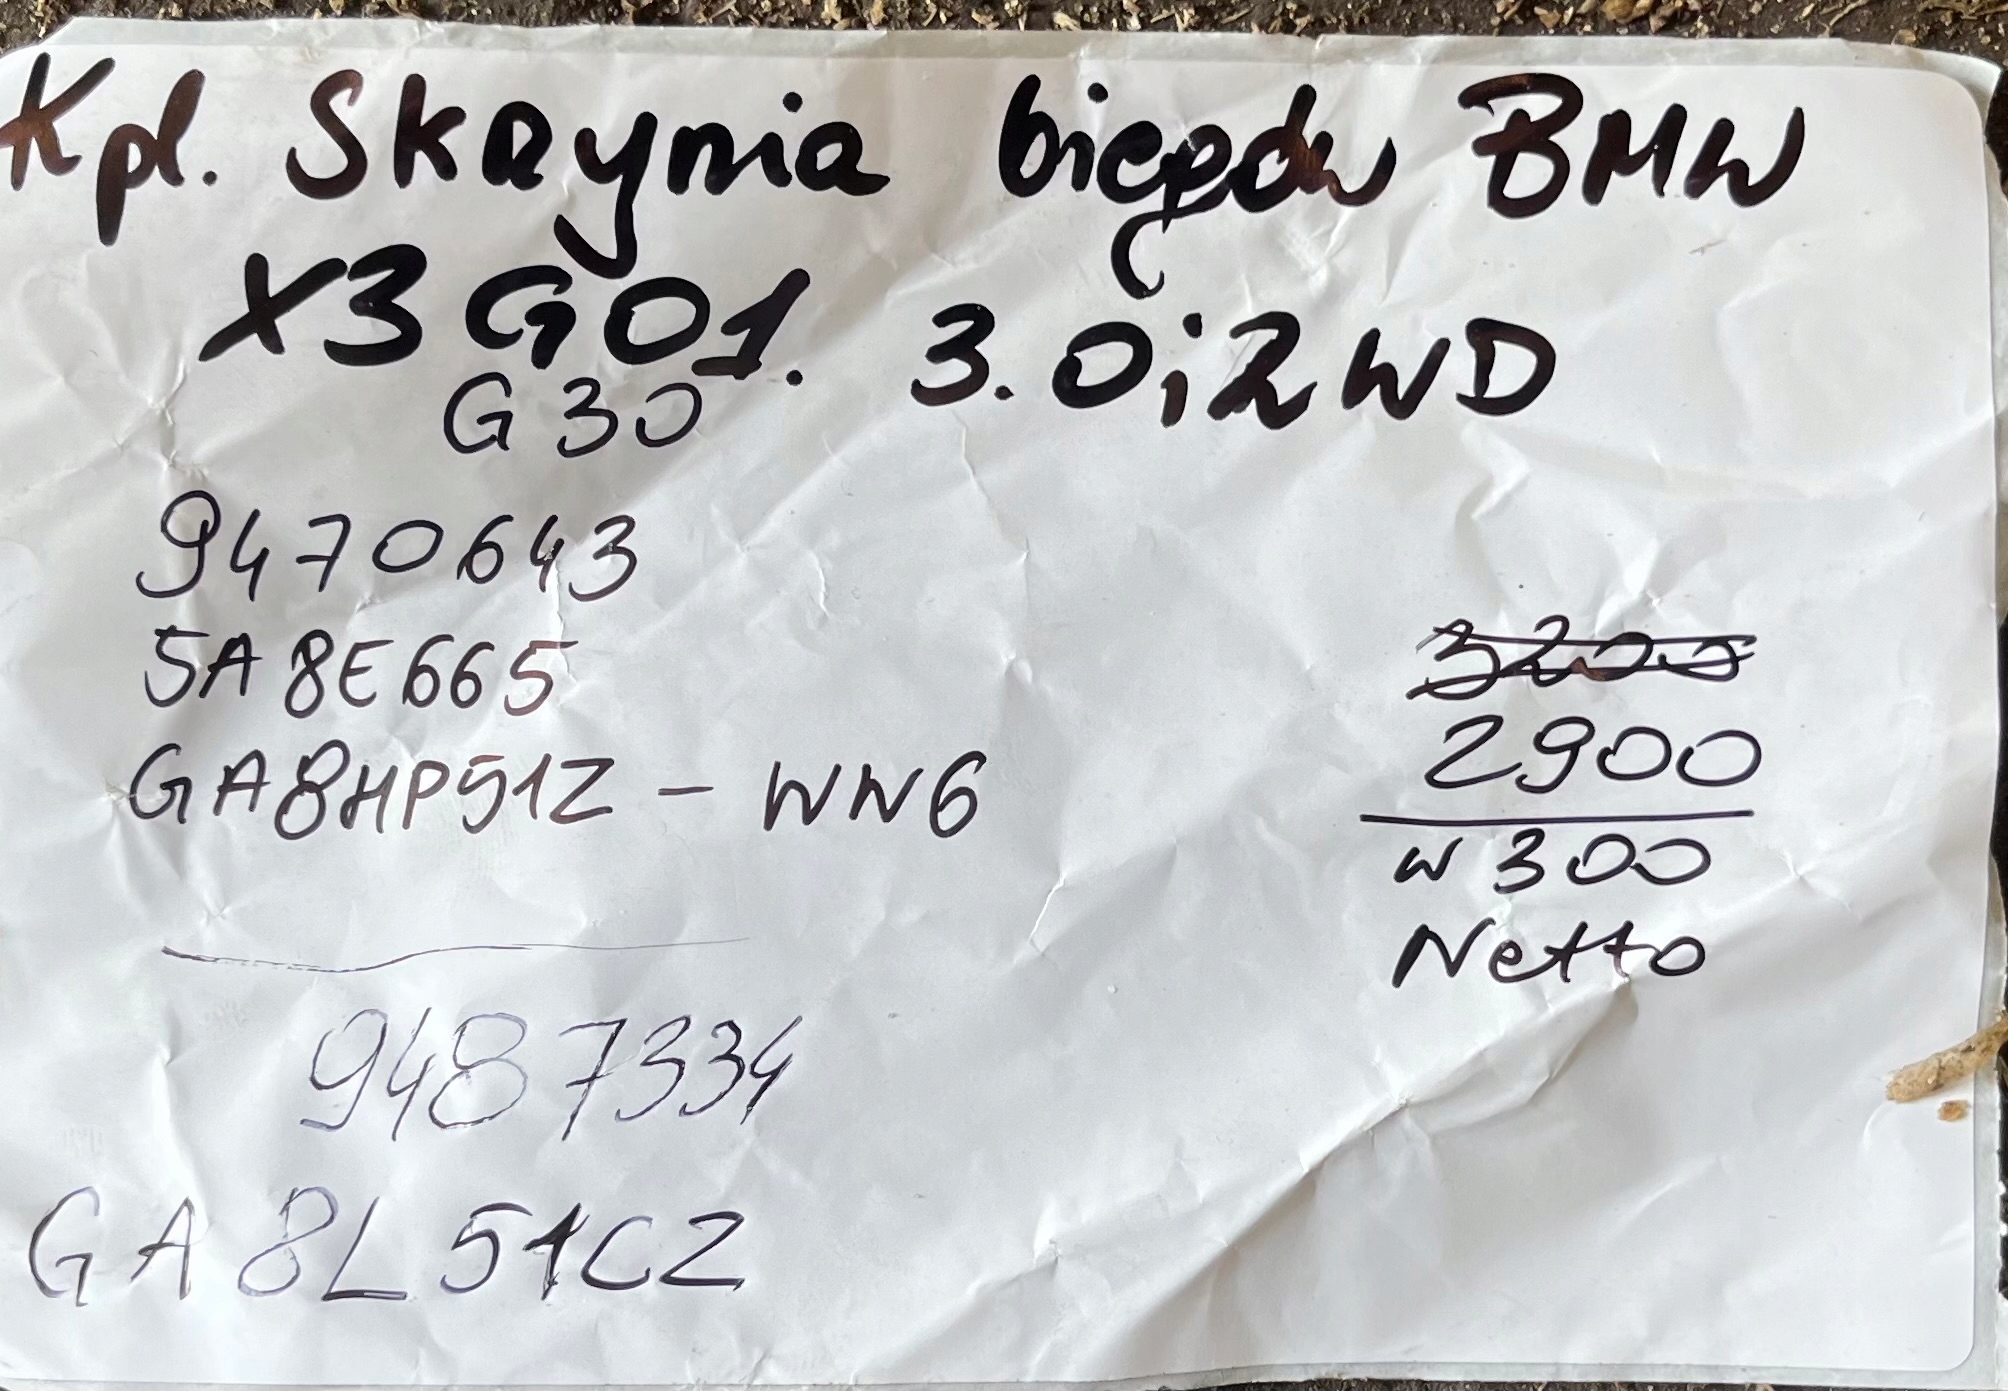 Kpl. Skrzynia biegów BMW
X3 G01. 3.0i 2WD
G30
9470643
5A8E665
GA8HP51Z - WW6
3200
2900
W 300
Netto
9487334
GA8L51CZ